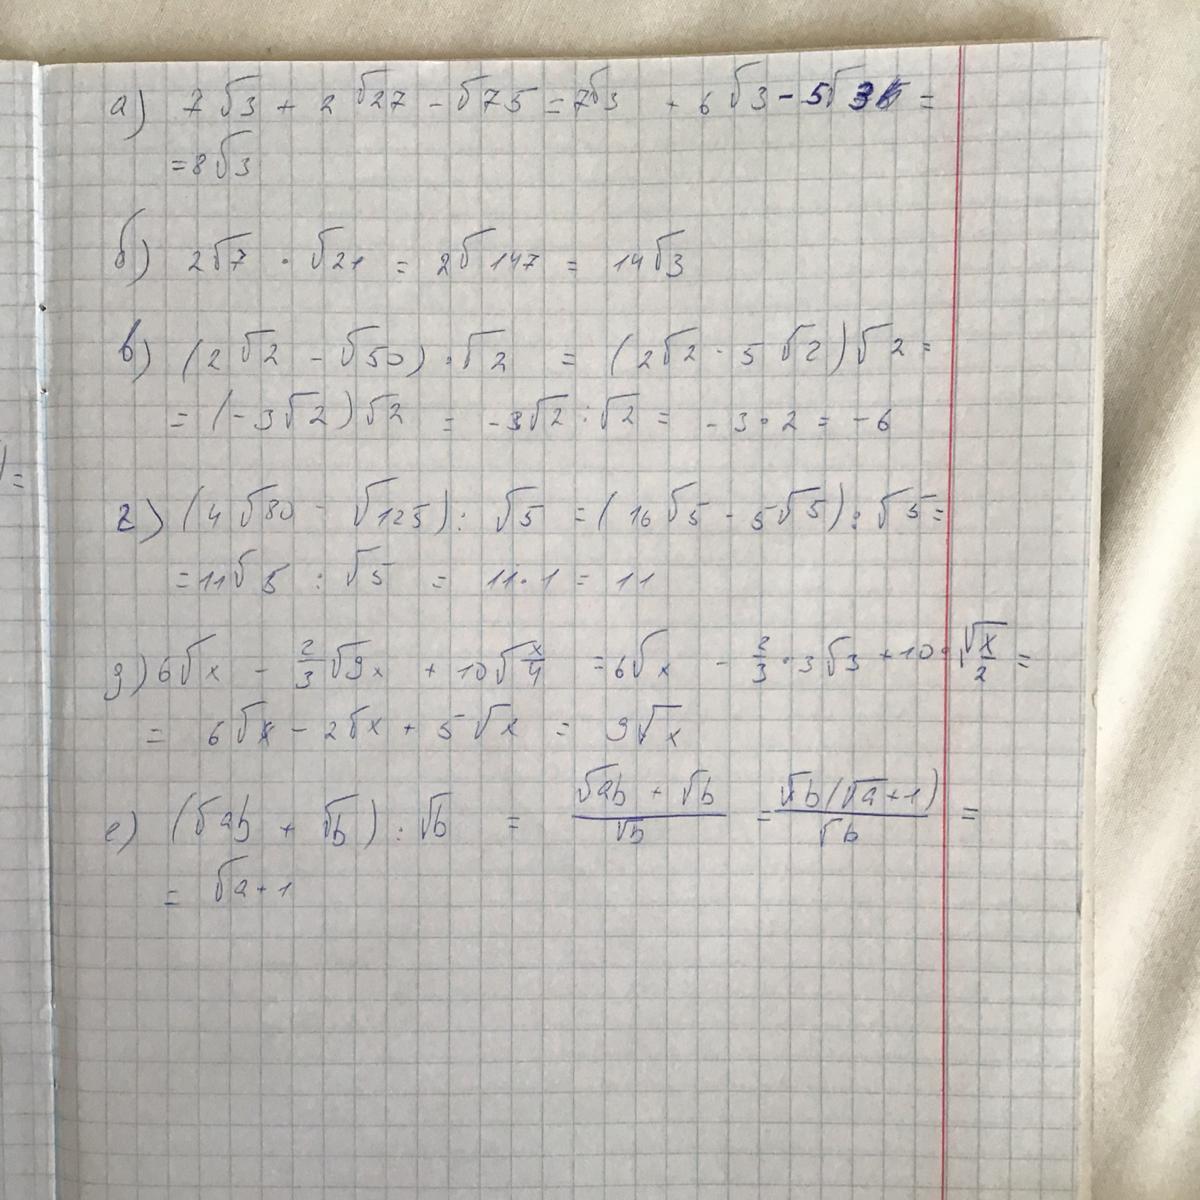 а) 7√3 + 2√27 - √75 = 7√3 + 6√3 - 5√3 =
= 8√3
б) 2√7 · √21 = 2√147 = 14√3
в) (2√2 - √50) · √2 = (2√2 - 5√2)√2 =
= (-3√2)√2 = -3√2 · √2 = -3·2 = -6
г) (4√80 - √125) : √5 = (16√5 - 5√5) : √5 =
= 11√5 : √5 = 11·1 = 11
д) 6√x - 2/3√9x + 10√x/4 = 6√x - 2/3·3√3 + 10·√x/2 =
= 6√x - 2√x + 5√x = 9√x
е) (√ab + √b) : √b = √ab + √b/√b = √b(√a+1)/√b =
= √a+1
) =